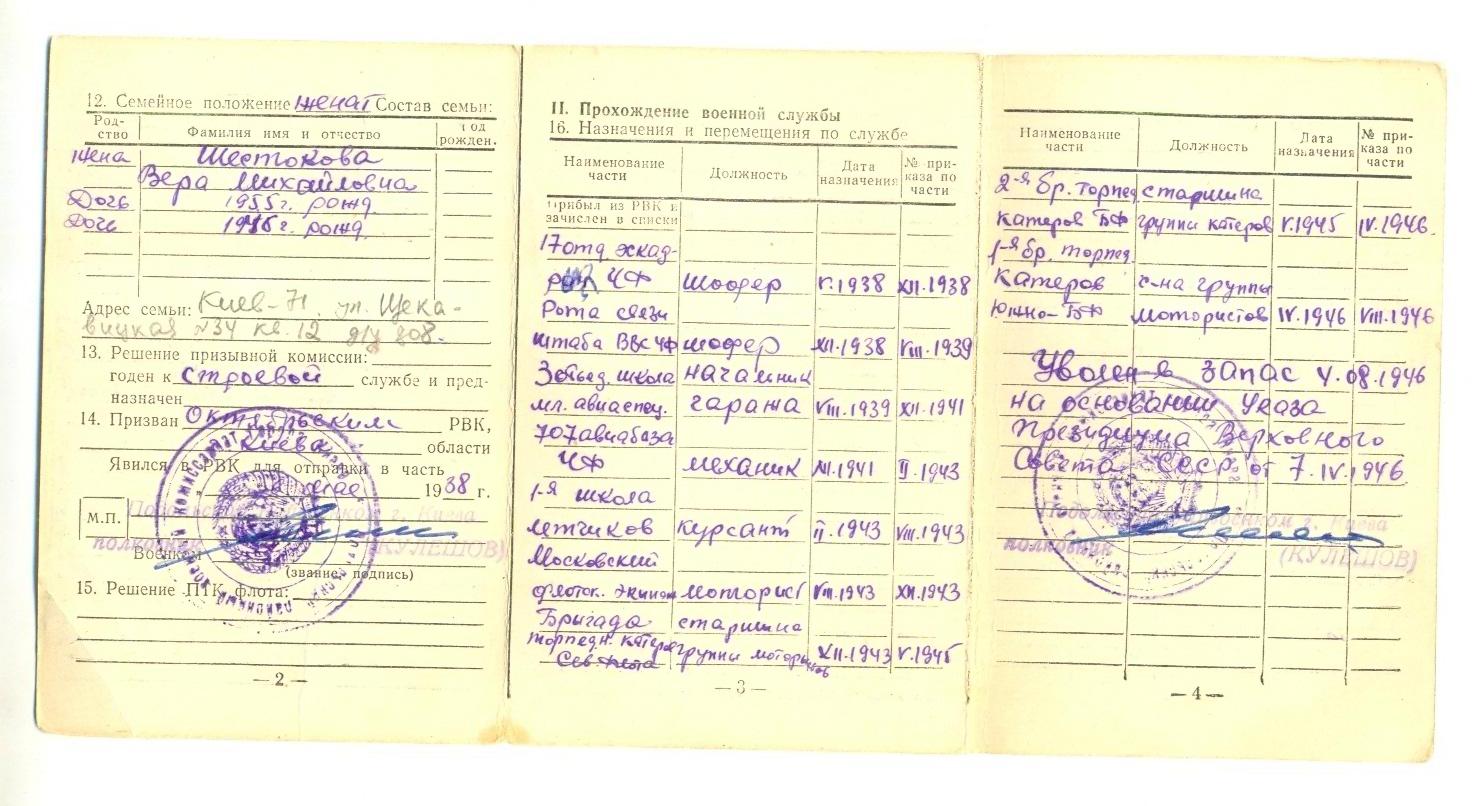 12. Семейное положение женат Состав семьи:
Род-ство Фамилия имя и отчество Год рожден.
Жена Шестокова
Вера Михайловна
Дочь 1955г. рожд
Дочь 1945г. рожд.
Адрес семьи: Киев-71 ул. Щека-
вицкая №34 кв. 12 д/у 808.
13. Решение призывной комиссии:
годен к строевой службе и пред-
назначен
14. Призван Октябрьским РВК,
г. Киева области
Явился в РВК для отправки в часть
мае 1938 г.
М.П.
Военком
полковник (КУЛЕШОВ)
(звание, подпись)
15. Решение ПТК флота:
— 2 —
II. Прохождение военной службы
16. Назначения и перемещения по службе
Наименование части Должность Дата назначения № при-каза по части
Прибыл из РВК и
зачислен в списки
17 отд. эскад-
ЧФ шофер V.1938 XII.1938
Рота связи
штаба ВВС ЧФ шофер XII.1938 VIII.1939
3 объед. школа начальник
мл. авиаспец. гаража VIII.1939 XII.1941
707 авиабаза
ЧФ механик XII.1941 II.1943
1-я школа
летчиков курсант II.1943 VIII.1943
Московский
флотск. экипаж моторист VIII.1943 XII.1943
Бригада старшина
торпедн. катеров группы мотористов XII.1943 V.1945
Сев. флота
— 3 —
Наименование части Должность Дата назначения № при-каза по части
2-я бр. торпед старшина
катеров БФ группы катеров V.1945 IV.1946.
1-я бр. торпед.
катеров с-на группы
Южно-БФ мотористов IV.1946 VIII.1946
Уволен в запас 4.08.1946
на основании Указа
Президиума Верховного
Совета СССР от 7.IV.1946
г. Киева
полковник (КУЛЕШОВ)
— 4 —